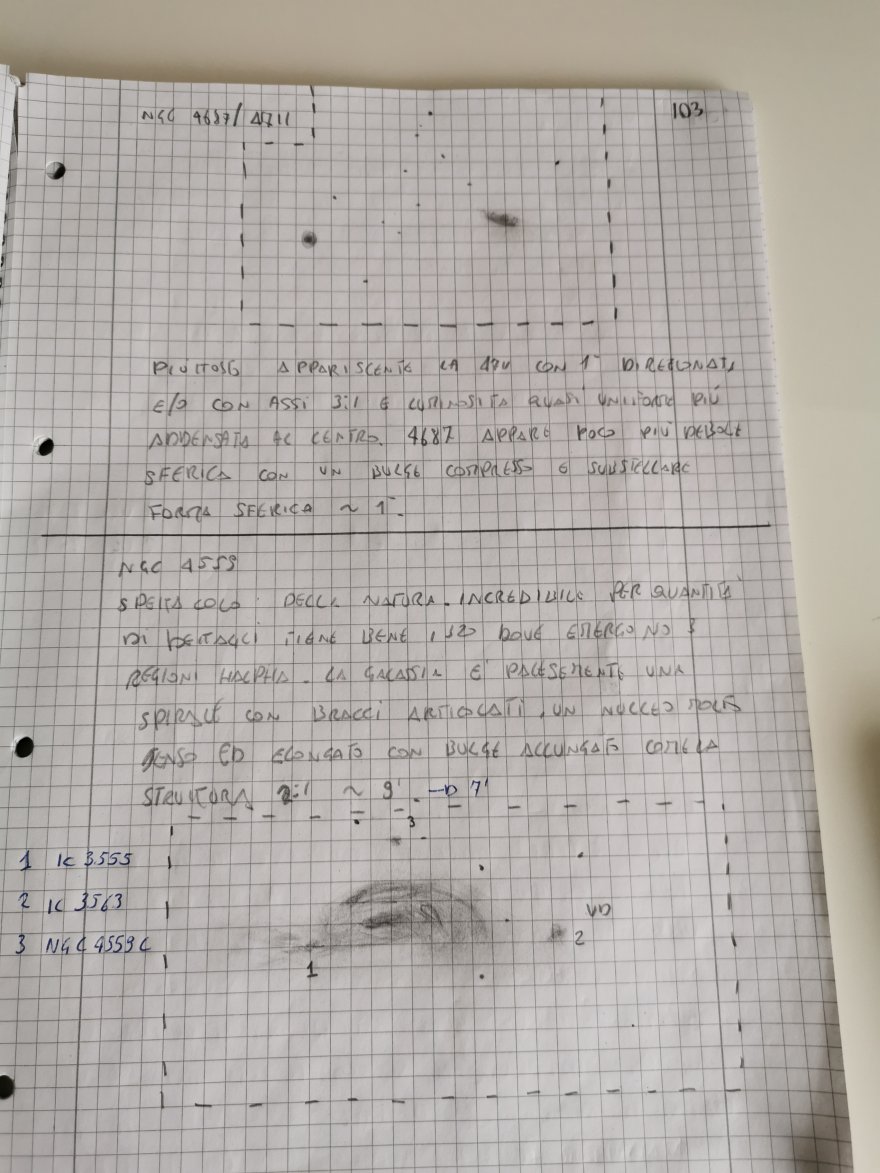 NGC 4687/4711
103
PIUTTOSTO APPARISCENTE LA 4711 CON 1' DIREZIONATA
E/O CON ASSI 3:1 E LUMINOSITÀ QUASI UNIFORME PIÙ
ADDENSATA AL CENTRO. 4687 APPARE POCO PIÙ DEBOLE
SFERICA CON UN BULGE COMPRESSO E SUBSTELLARE
FORMA SFERICA ~ 1'.
NGC 4559
SPETTACOLO DELLA NATURA. INCREDIBILE PER QUANTITÀ
DI DETTAGLI TIENE BENE I DOVE EMERGONO 3
REGIONI HALPHA. LA GALASSIA E' PALESEMENTE UNA
SPIRALE CON BRACCI ARTICOLATI, UN NUCLEO MOLTO
DENSO ED ELONGATO CON BULGE ALLUNGATO COME LA
STRUTTURA 2:1 ~ 9' → 7'
3
1 IC 3555
2 IC 3563
3 NGC 4559C
VD
2
1